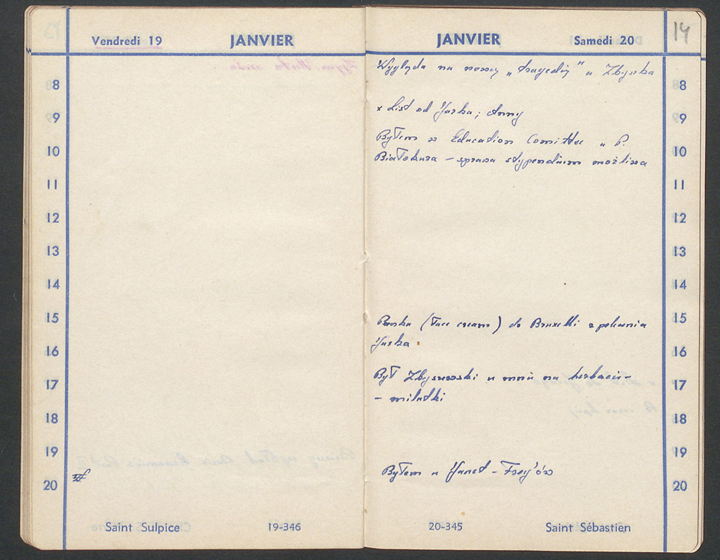 Vendredi 19 JANVIER
8
9
10
11
12
13
14
15
16
17
18
19
20
Saint Sulpice 19-346
JANVIER Samedi 20
14
8 Wygląda na nową „tragedię" u Zbyszka
9 x List od Jurka i Anny
Byłem w Education Comittee u P.
10 - sprawa stypendium możliwa
11
12
13
14
15 (Face cream) do Bruxelli
16 Jurka.
17 Był Zbyszewski u mnie na herbacie -
- milutki
18
19
20 Byłem u Janet -
20-345 Saint Sébastien